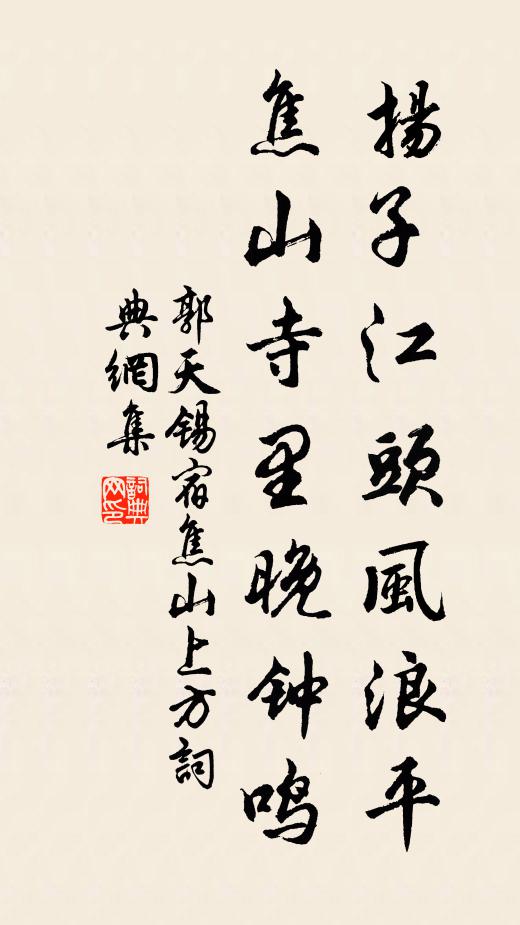 揚子江頭風浪平
焦山寺里晚钟鸣
郭天锡宿焦山上方詞
典網集
詞典网印